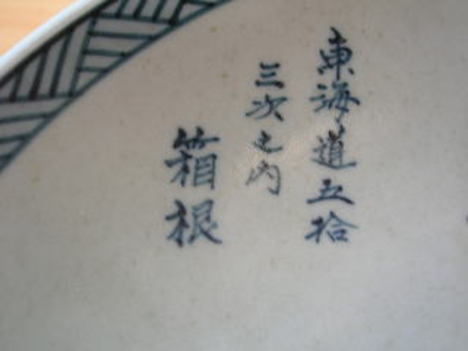 東海道五拾
三次之内
箱根